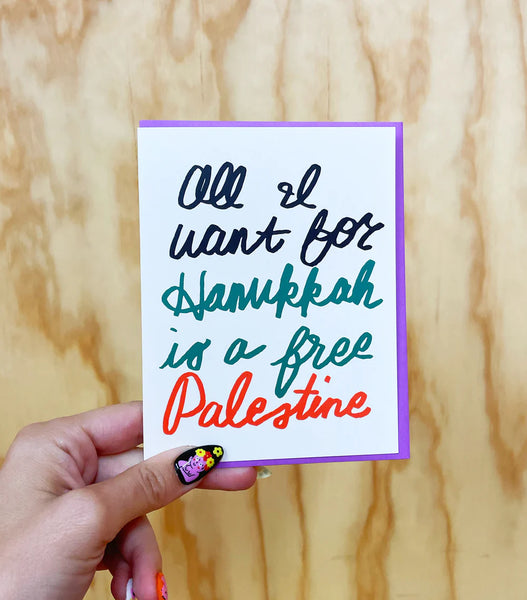 All I
want for
Hanukkah
is a free
Palestine